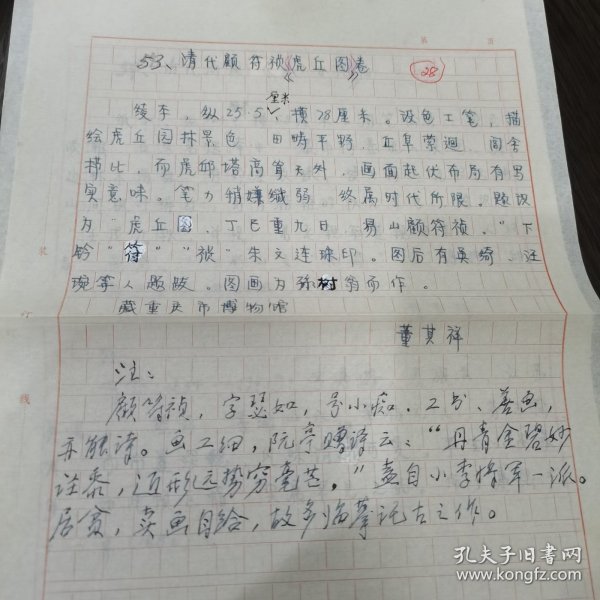 第 页
53、清代顾符祯《虎丘图》卷
28
厘米
绫本，纵25.5、横78厘米。设色工笔，描
绘虎丘园林景色。田畴平野，丘阜萦迴，闾舍
栉比，而虎邱塔高耸天外，画面起伏布局有写
实意味。笔力稍嫌纤弱，终属时代所限。题款
为“虎丘图，丁巳重九日，易山顾符祯。”下
钤“符”“祯”朱文连珠印。图后有吴绮、汪
琬等人题跋。图画为孙树翁而作。
藏重庆市博物馆
董其祥
注：
顾符祯，字瑟如，号小痴。工书、善画，
亦能诗。画工细，阮亭赠诗云：“丹青金碧妙
铨黍，近形远势穷毫芒。”盖自小李将军一派。
居贫，卖画自给，故多临摹托古之作。
装
订
线
孔夫子旧书网
www.kongfz.com